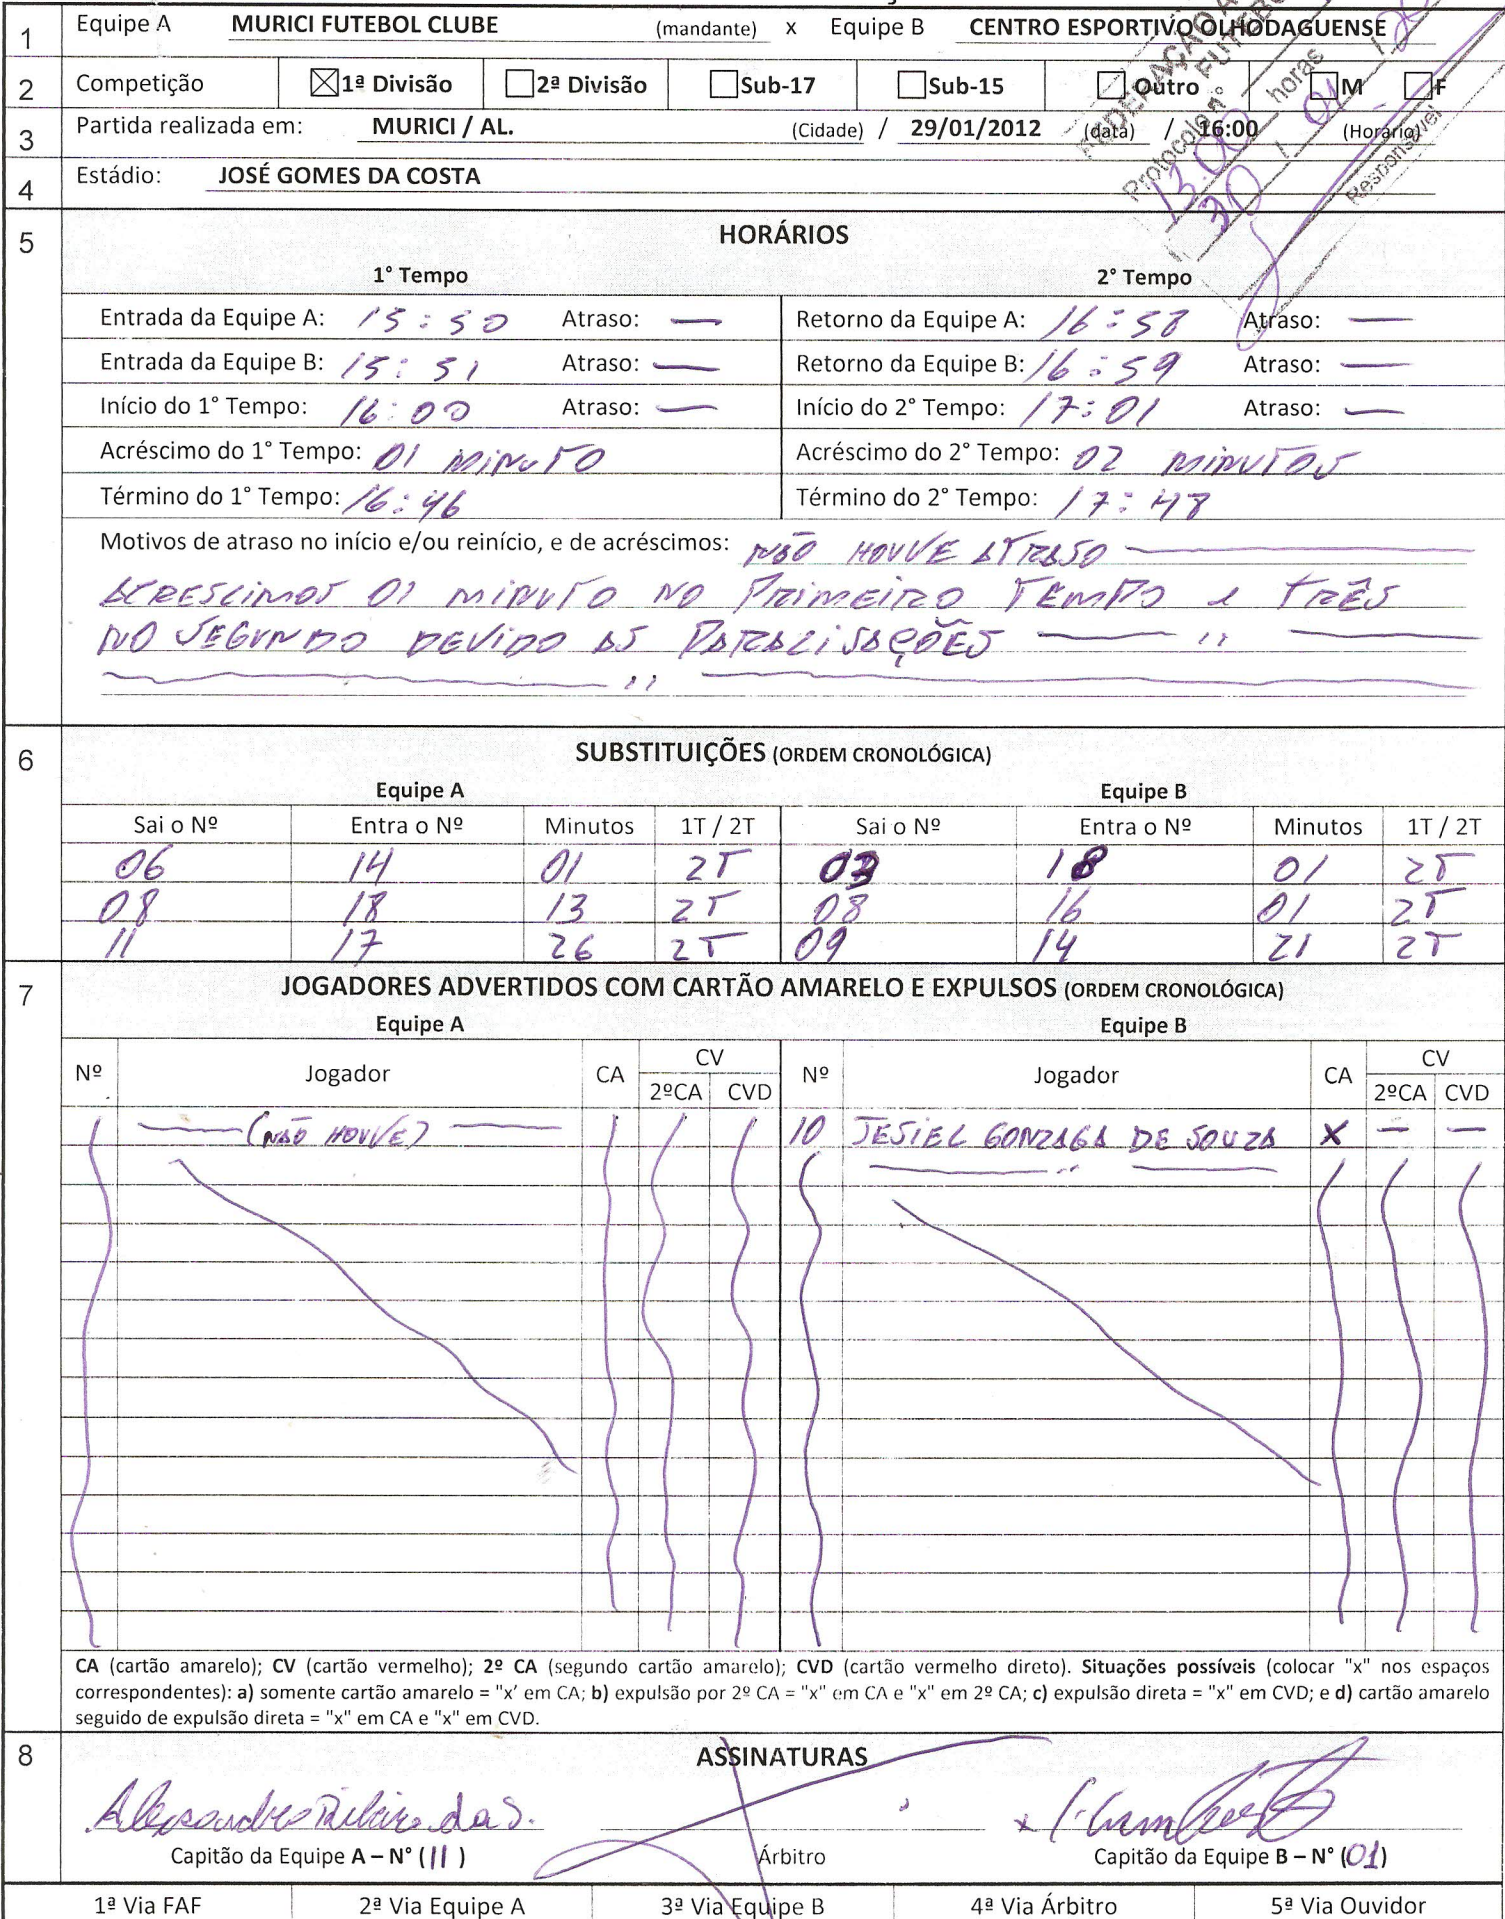 1 Equipe A MURICI FUTEBOL CLUBE (mandante) x Equipe B CENTRO ESPORTIVO OLHODAGUENSE
2 Competição ☒1ª Divisão ☐2ª Divisão ☐Sub-17 ☐Sub-15 ☐Outro ☐M ☐F
3 Partida realizada em: MURICI / AL. (Cidade) / 29/01/2012 (data) / 16:00 (Horário)
4 Estádio: JOSÉ GOMES DA COSTA
Protocolo nº
13:00 horas
30 / 01 /
Responsável
5 HORÁRIOS
1° Tempo 2° Tempo
Entrada da Equipe A: 15:50 Atraso: — Retorno da Equipe A: 16:58 Atraso: —
Entrada da Equipe B: 15:51 Atraso: — Retorno da Equipe B: 16:59 Atraso: —
Início do 1° Tempo: 16:00 Atraso: — Início do 2° Tempo: 17:01 Atraso: —
Acréscimo do 1° Tempo: 01 MINUTO Acréscimo do 2° Tempo: 02 MINUTOS
Término do 1° Tempo: 16:46 Término do 2° Tempo: 17:48
Motivos de atraso no início e/ou reinício, e de acréscimos: NÃO HOUVE ATRASO
ACRESCIMOS 01 MINUTO NO PRIMEIRO TEMPO e TRÊS
NO SEGUNDO DEVIDO AS PARALISAÇÕES
6 SUBSTITUIÇÕES (ORDEM CRONOLÓGICA)
Equipe A Equipe B
Sai o Nº Entra o Nº Minutos 1T / 2T Sai o Nº Entra o Nº Minutos 1T / 2T
06 14 01 2T 03 18 01 2T
08 18 13 2T 08 16 01 2T
11 17 26 2T 09 14 21 2T
7 JOGADORES ADVERTIDOS COM CARTÃO AMARELO E EXPULSOS (ORDEM CRONOLÓGICA)
Equipe A Equipe B
Nº Jogador CA CV Nº Jogador CA CV
2ºCA CVD 2ºCA CVD
(NÃO HOUVE) 10 JESIEL GONZAGA DE SOUZA X — —
CA (cartão amarelo); CV (cartão vermelho); 2º CA (segundo cartão amarelo); CVD (cartão vermelho direto). Situações possíveis (colocar "x" nos espaços
correspondentes): a) somente cartão amarelo = "x' em CA; b) expulsão por 2º CA = "x" em CA e "x" em 2º CA; c) expulsão direta = "x" em CVD; e d) cartão amarelo
seguido de expulsão direta = "x" em CA e "x" em CVD.
8 ASSINATURAS
Alessandro Ribeiro da S.
Capitão da Equipe A – N° (11) Árbitro Capitão da Equipe B – N° (01)
1ª Via FAF 2ª Via Equipe A 3ª Via Equipe B 4ª Via Árbitro 5ª Via Ouvidor